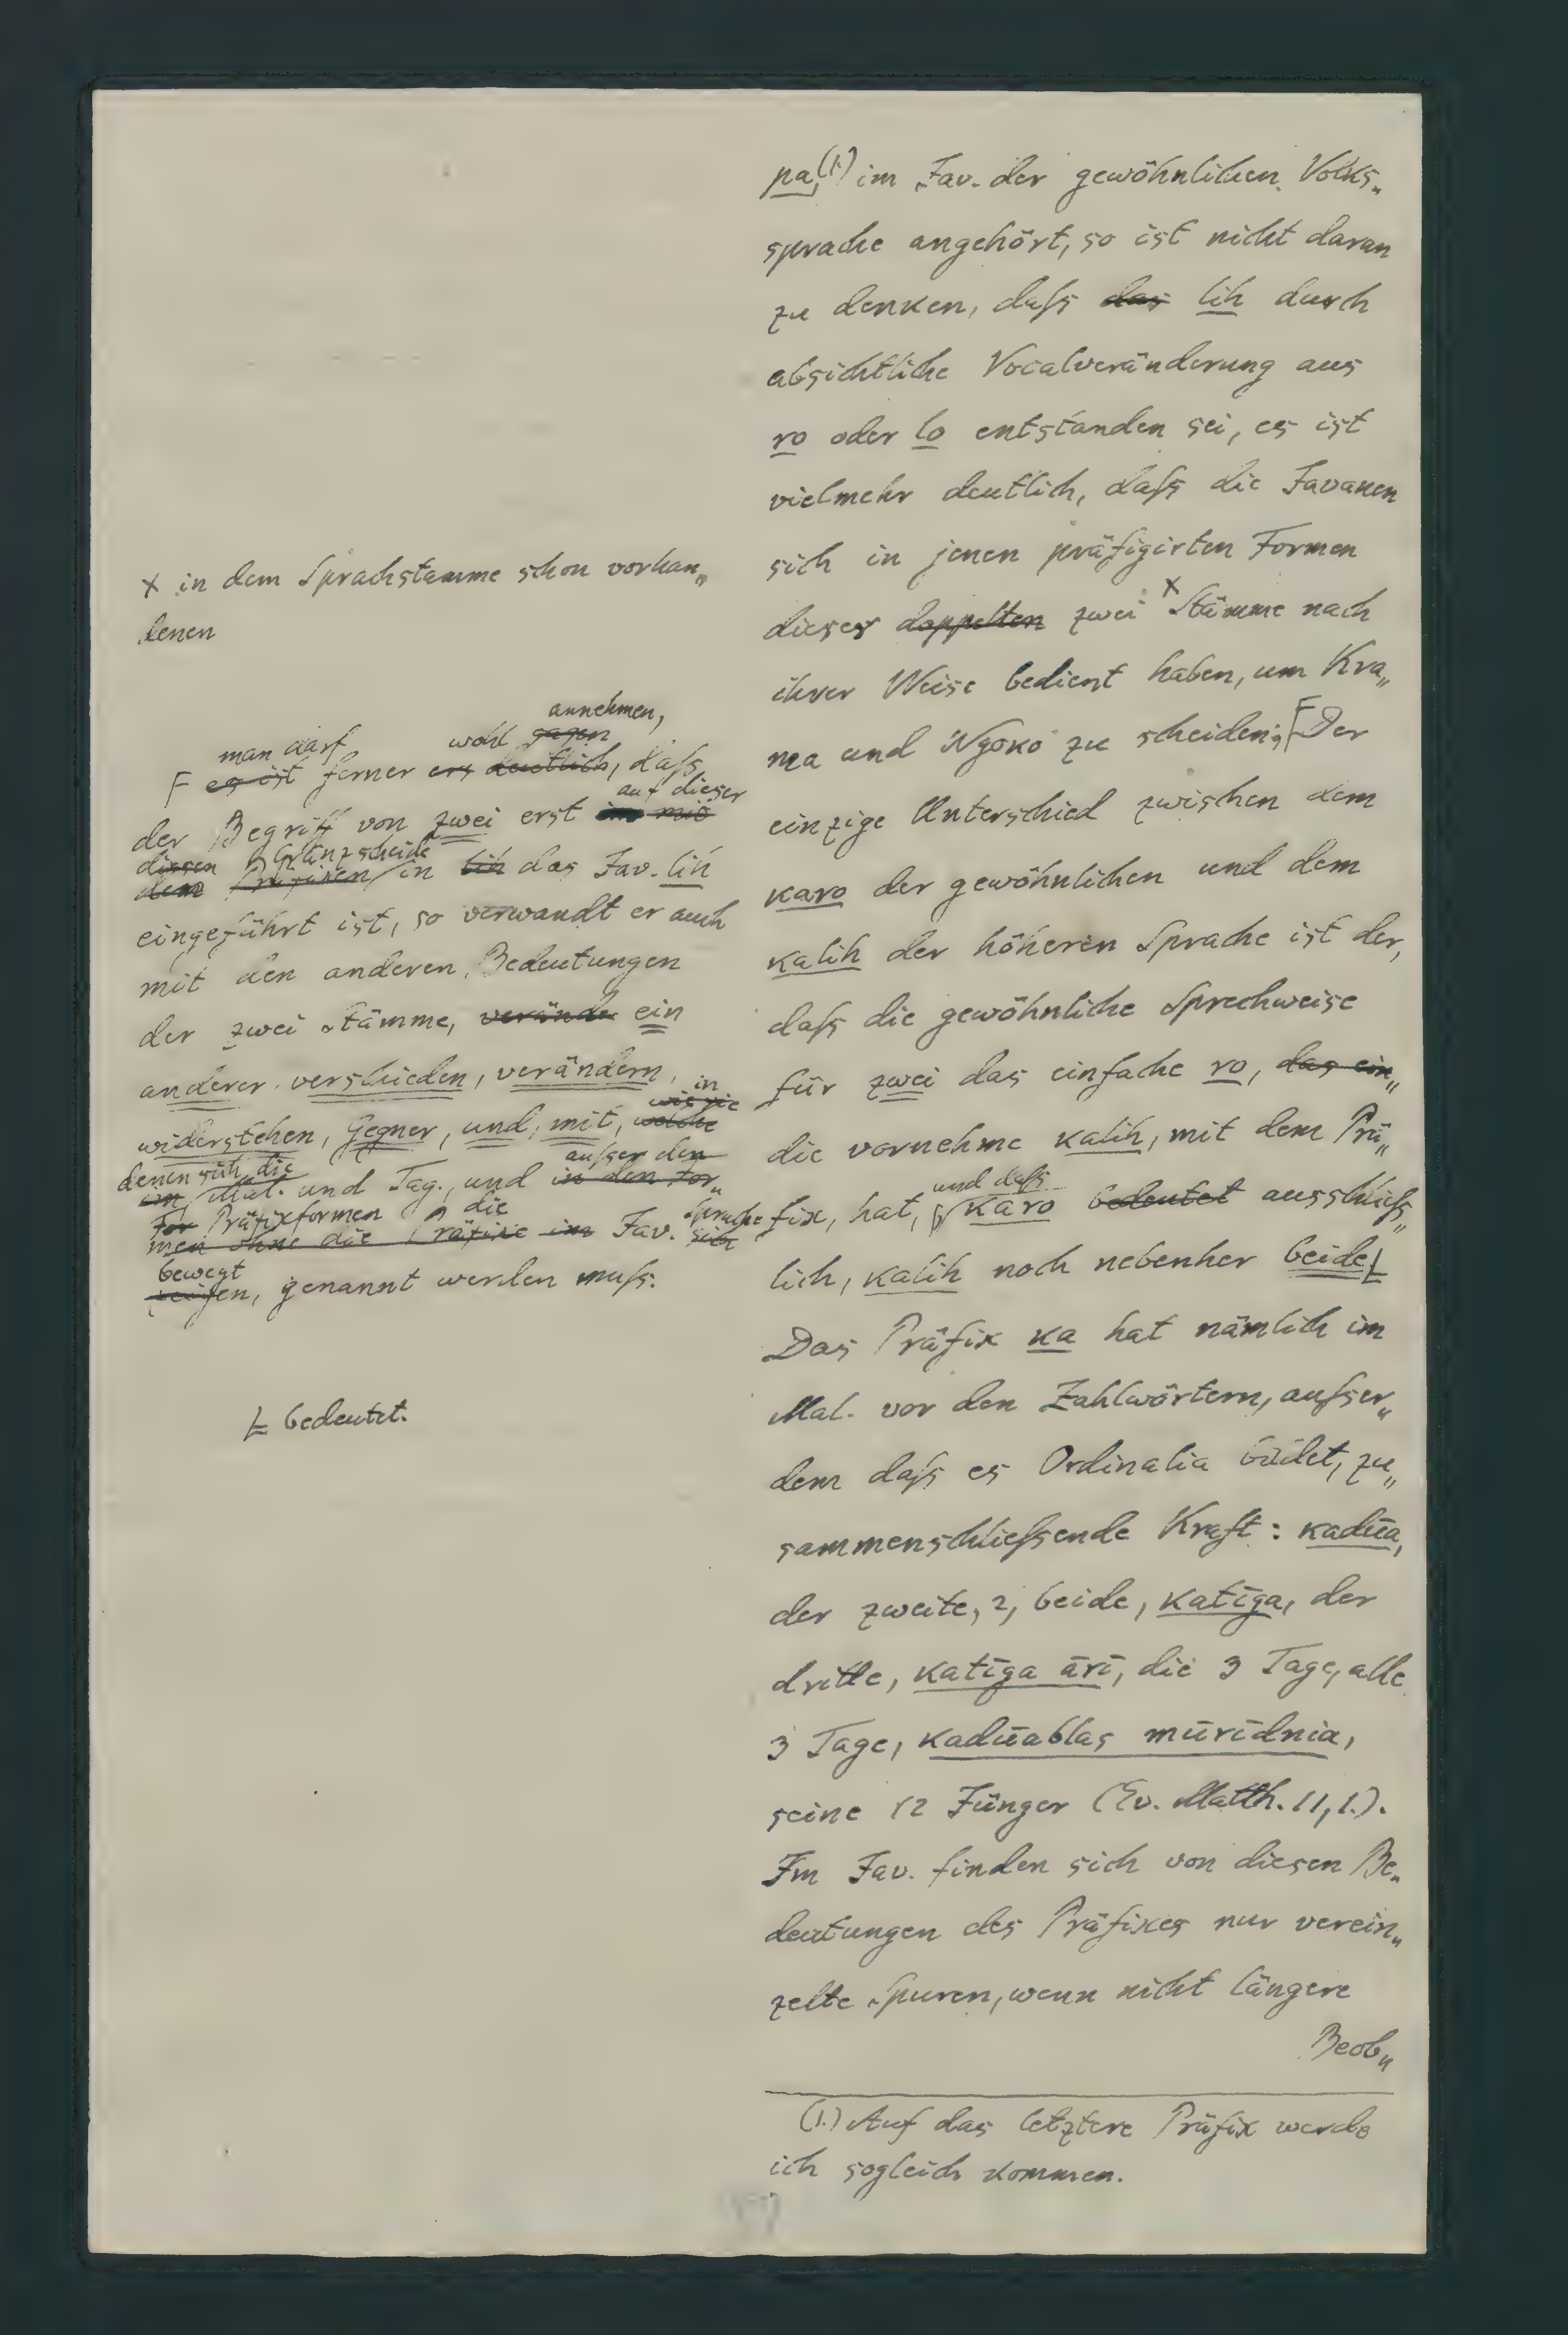 pa,(1.) im Jav. der gewöhnlichen Volks„
sprache angehört, so ist nicht daran
zu denken, daſs das lih durch
absichtliche Vocalveränderung aus
ro oder lo entstanden sei, es ist
vielmehr deutlich, daſs die Javanen
sich in jenen präfigirten Formen
dieser doppelten zwei x Stämme nach
ihrer Weise bedient haben, um Kra„
ma und Ngoko zu scheiden; F Der
einzige Unterschied zwischen dem
karo der gewöhnlichen und dem
kalih der höheren Sprache ist der,
daſs die gewöhnliche Sprechweise
für zwei das einfache ro, das ein„
die vornehme kalih, mit dem Prä„
fix, hat, und daſs karo bedeutet ausschlieſs„
lich, kalih noch nebenher beide L
Das Präfix ka hat nämlich im
Mal. vor den Zahlwörtern, auſser„
dem daſs es Ordinalia bildet, zu„
sammenschlieſsende Kraft: kadūa,
der zweite, 2, beide, katīga, der
dritte, katīga ārī, die 3 Tage, alle
3 Tage, kadūablas mūrīdnia,
seine 12 Jünger (Ev. Matth. 11, 1.).
Im Jav. finden sich von diesen Be„
deutungen des Präfixes nur verein„
zelte Spuren, wenn nicht längere
Beob„
(1.) Auf das letztere Präfix werde
ich sogleich kommen.
x in dem Sprachstamme schon vorhan„
denen
annehmen,
man darf wohl sagen
F es ist ferner deutlich, daſs
auf dieser
der Begriff von zwei erst im
diesen Gränzscheide
dem Präfixen in lih das Jav. lih
eingeführt ist, so verwandt er auch
mit den anderen Bedeutungen
der zwei Stämme, verände ein
anderer, verschieden, verändern,
in
wie sie
widerstehen, Gegner, und, mit, welche
denen sich die auſser den
im Mal. und Tag., und in den For„
For Präfixformen die Sprache
men ohne die Präfixe im Jav. sich
bewegt
zeigen, genannt werden muſs.
L bedeutet.